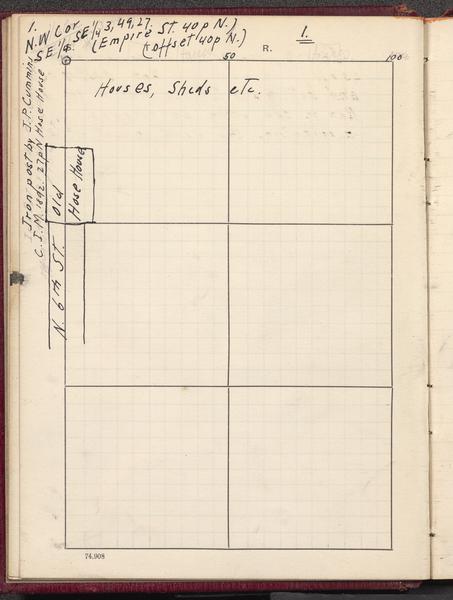 1.
N.W Cor
SE 1/4, SE 1/4, 3, 49, 27.
(Empire St. 40 p N.)
(offset 40 p N.)
1.
50
R.
100
Houses, Sheds etc.
Iron post by J.P. Cummin
C.S.M. 1892. 27 p N Hose House
Old
Hose House
N 6th St.
74,908